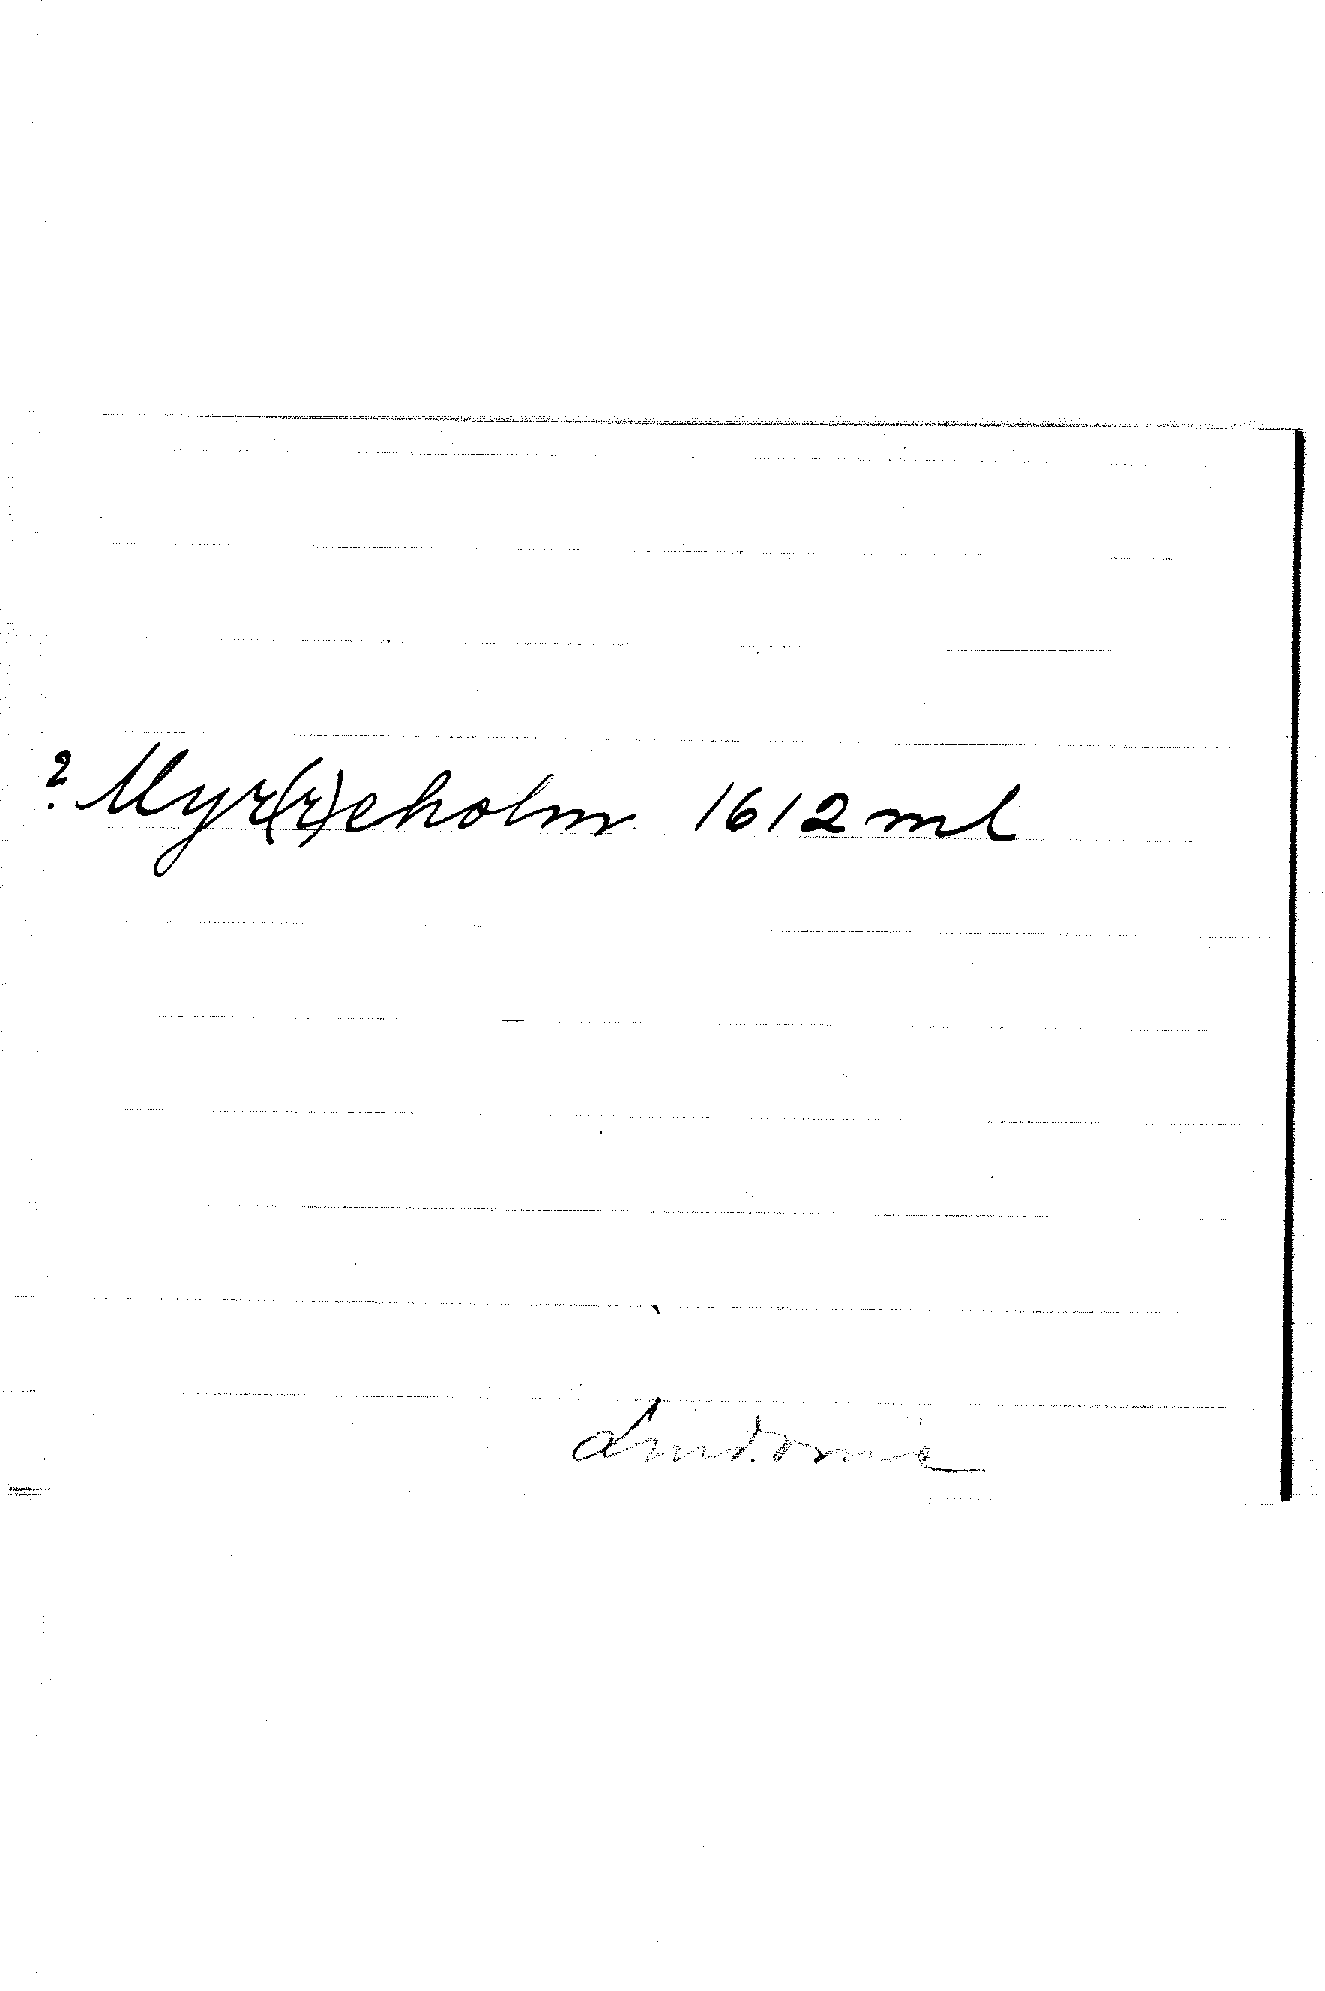 ? Myr(r)eholm 1612 ml
Lindome